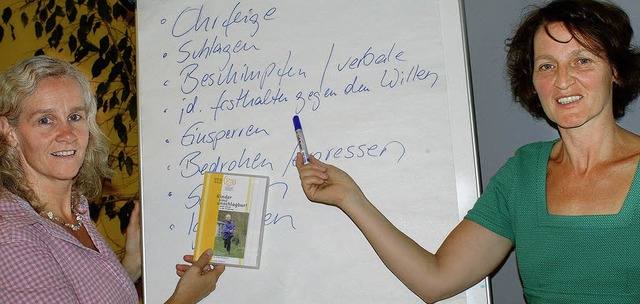 Ohrfeige
Schlagen
Beschimpfen / verbale
jd. festhalten gegen den Willen
Einsperren
Bedrohen / erpressen
Kinder
sind
unschlagbar!